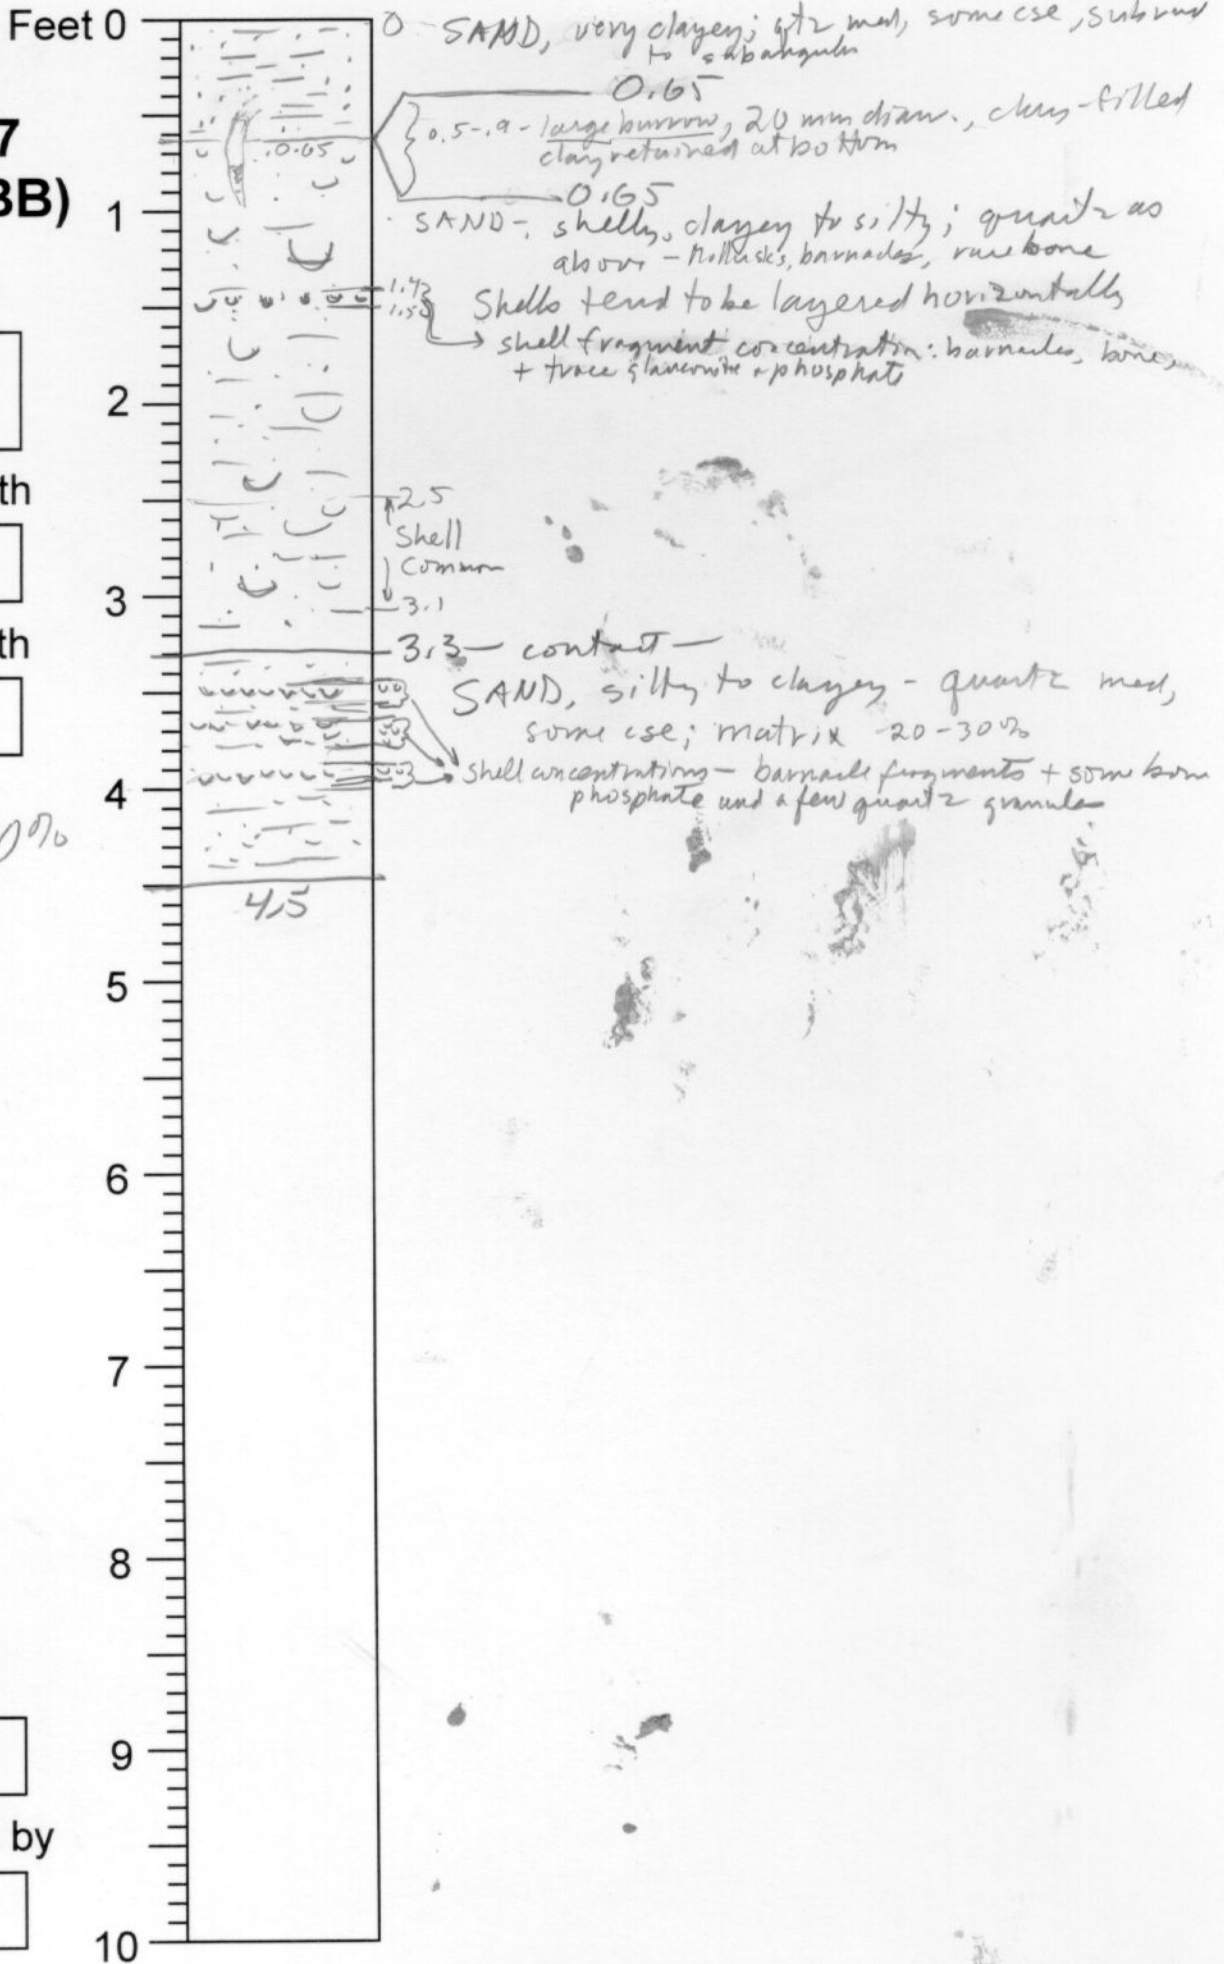 Feet 0
0 SAND, very clayey; qtz med, some cse, subrnd
to subangular
0.65
7
0.5-.9 - large burrow, 20 mm diam., clay-filled
clay retained at bottom
0.65
0.65
BB)
1
SAND -, shelly, clayey to silty; quartz as
above - Mollusks, barnacles, rare bone
1.42
Shells tend to be layered horizontally
shell fragment concentration: barnacles, bone,
+ trace glauconite + phosphate
2
th
2.5
Shell
Common
3
3.1
th
3.3 - contact -
SAND, silty to clayey - quartz med,
some cse; matrix 20-30%
shell concentrations - barnacle fragments + some bone
4
phosphate and a few quartz granules
0%
4.5
5
6
7
8
9
by
10